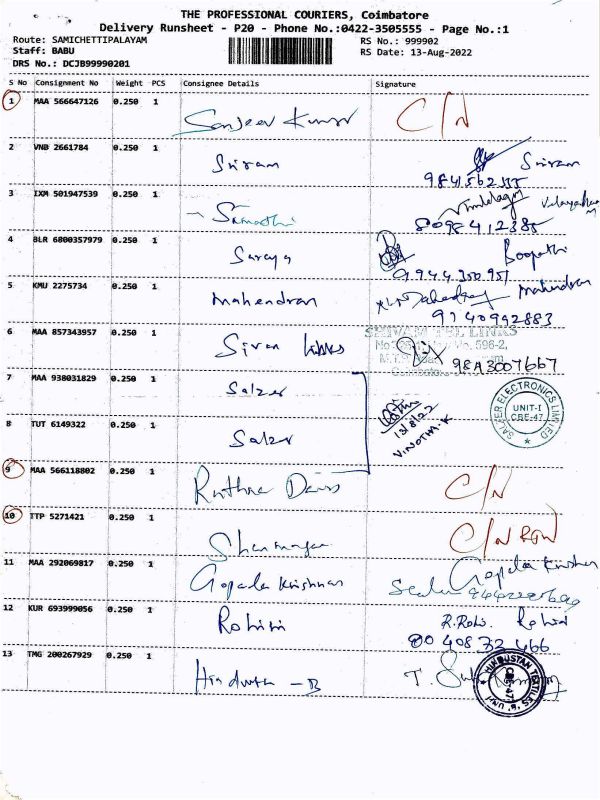 THE PROFESSIONAL COURIERS, Coimbatore
Delivery Runsheet - P20 - Phone No.:0422-3505555 - Page No.:1
Route: SAMICHETTIPALAYAM RS No.: 999902
Staff: BABU RS Date: 13-Aug-2022
DRS No.: DCJB99990201
S No Consignment No Weight PCS Consignee Details Signature
1 MAA 566647126 0.250 1 Sanjeev Kumar C/N
2 VNB 2661784 0.250 1 Sriram Sriram
3 IXM 501947539 0.250 1
8098412385
4 BLR 6800357979 0.250 1 Saraya Boopathi
9944350951
5 KMU 2275734 0.250 1 Mahendran Mahendran
9140992883
6 MAA 857343957 0.250 1 Sivan Links
SHIVAM TEL LINKS
98A3007667
7 MAA 938031829 0.250 1 Salzer
13/8/22
VINOTH.K
SALZER ELECTRONICS LIMITED
UNIT-I
CBE-47
8 TUT 6149322 0.250 1 Salzer
9 MAA 566118802 0.250 1 C/N
10 TTP 5271421 0.250 1 C/N
11 MAA 292069817 0.250 1 Gopala Krishnan Gopala Krishnan
12 KUR 693999056 0.250 1 Rohini R.Rohi. Rohini
13 TMG 200267929 0.250 1 T.
HINDUSTAN TEXTILES 'B' UNIT
CBE-47